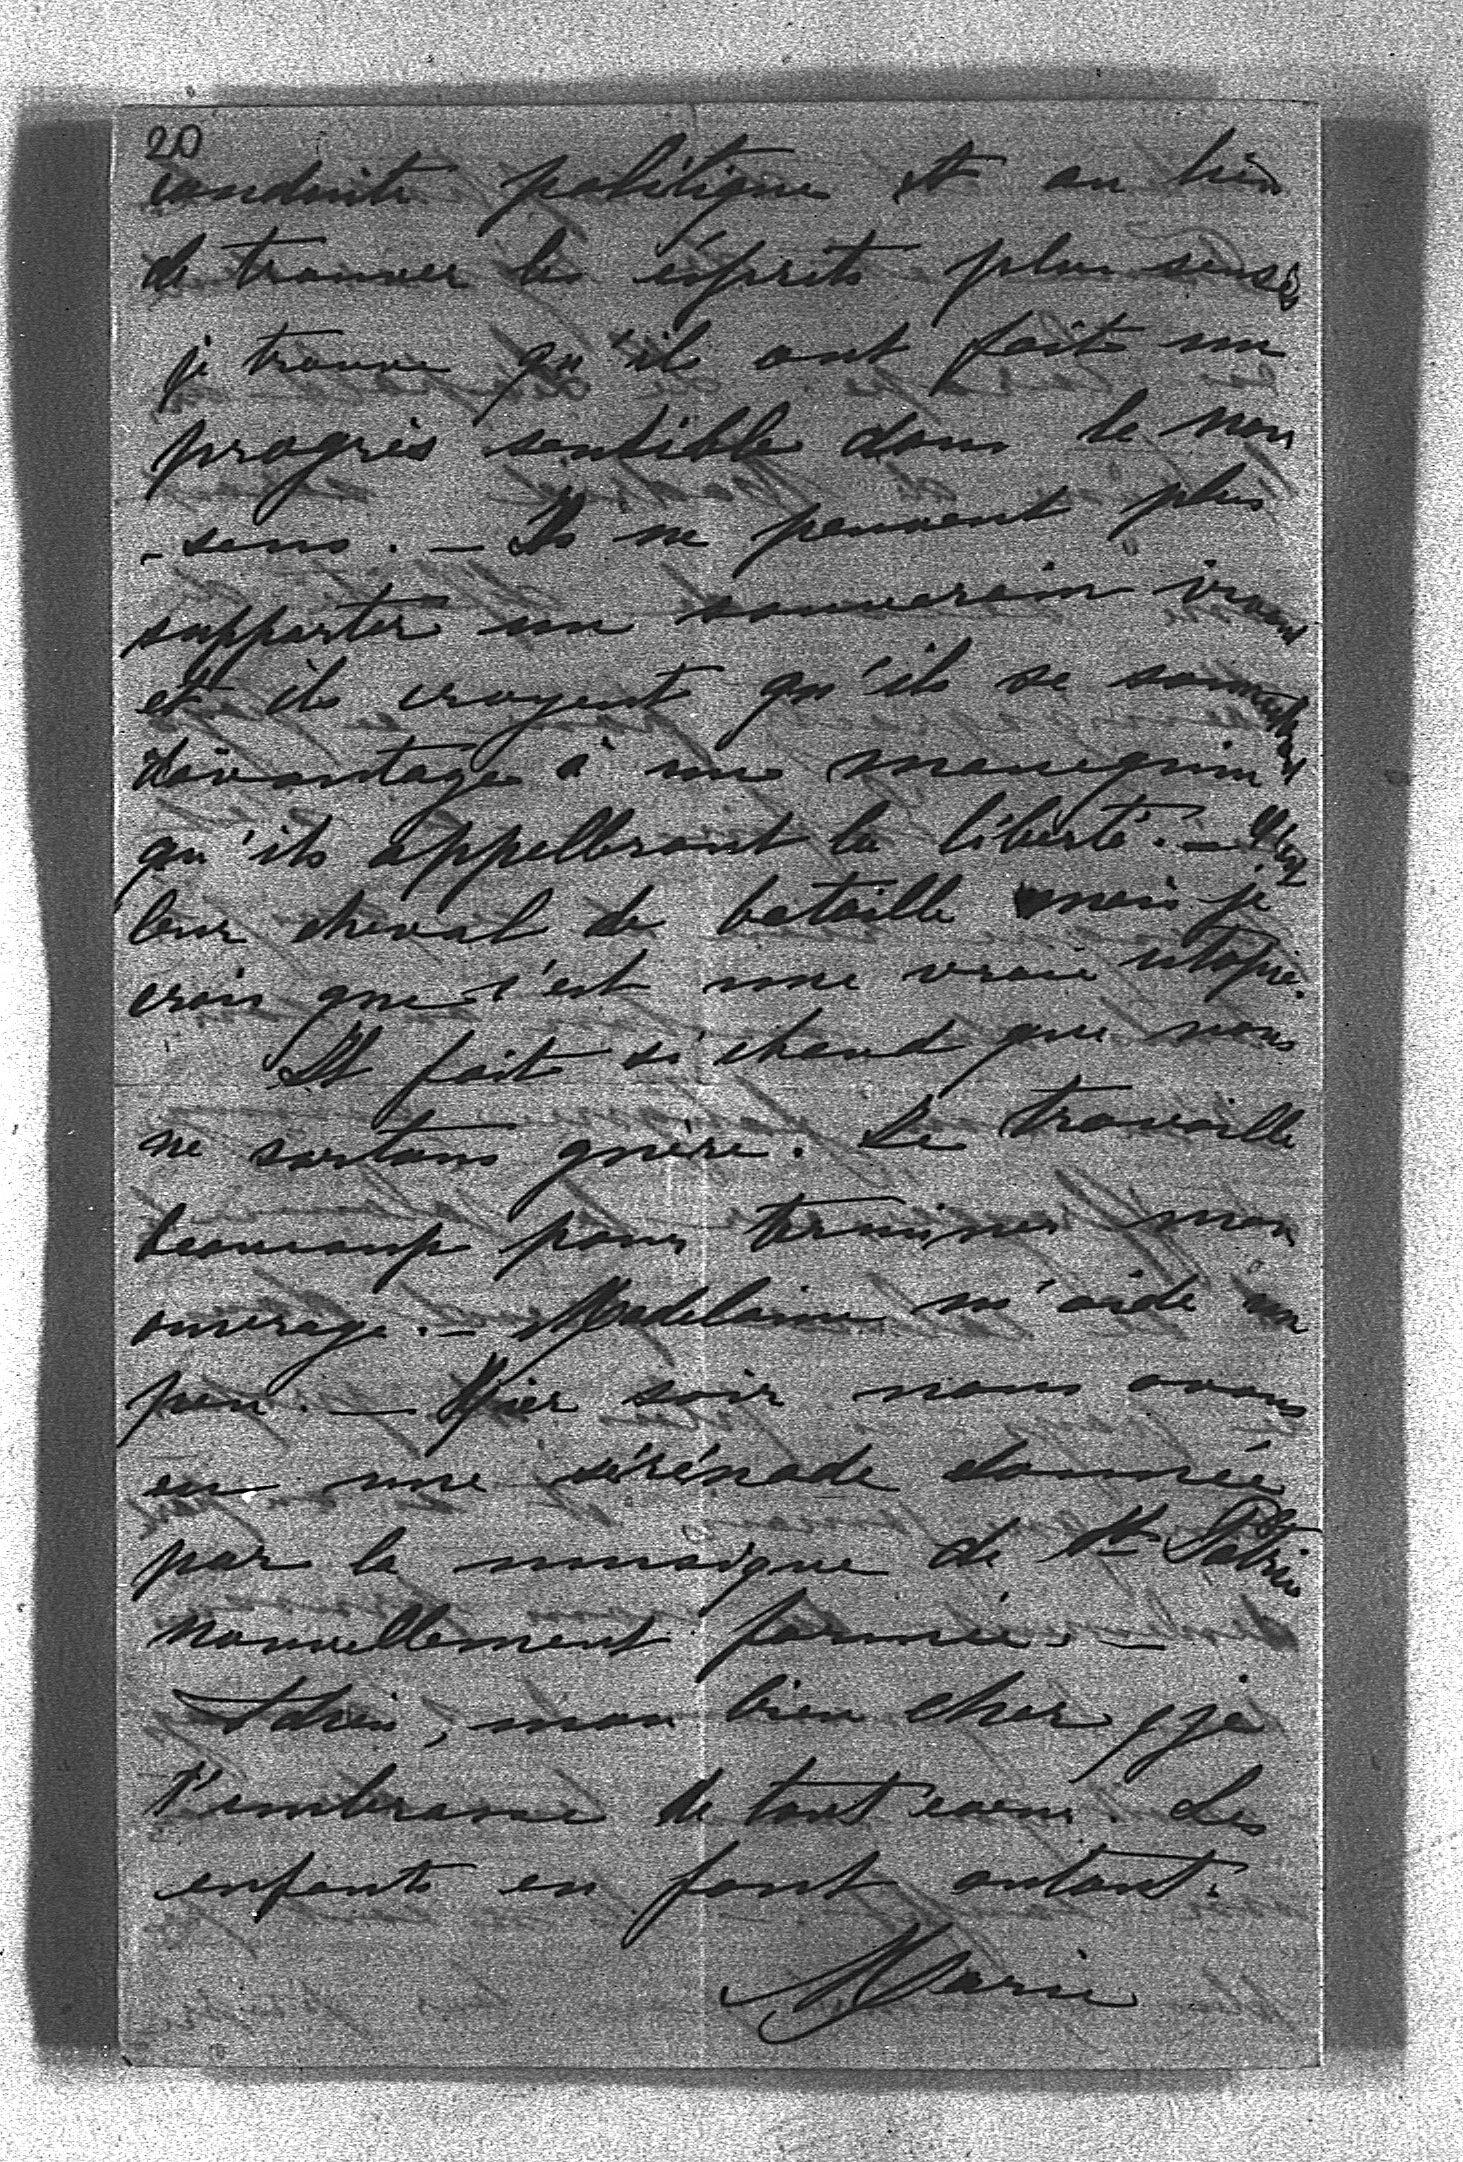 20
conduite politique et au lieu
de trouver les ésprits plus sensés
je trouve qu'ils ont fait un
progrès sensible dans le non
-sens. - Ils ne peuvent plus
supporter un souverain vivant
et ils croyent qu'ils se soumettront
davantage à un mannequin
qu'ils appelleront la liberté. -
leur cheval de bataille mais je
crois que c'est une vraie utopie.
Il fait si chaud que nous
ne sortons guère. Je travaille
beaucoup pour terminer mon
ouvrage. - Madelaine m'aide un
peu. - Hier soir nous avons
eu une sérénade donnée
par la musique de St Patrice
nouvellement formée. -
Adieu, mon bien cher, je
t'embrasse de tout coeur. Les
enfants en font autant.
Marie